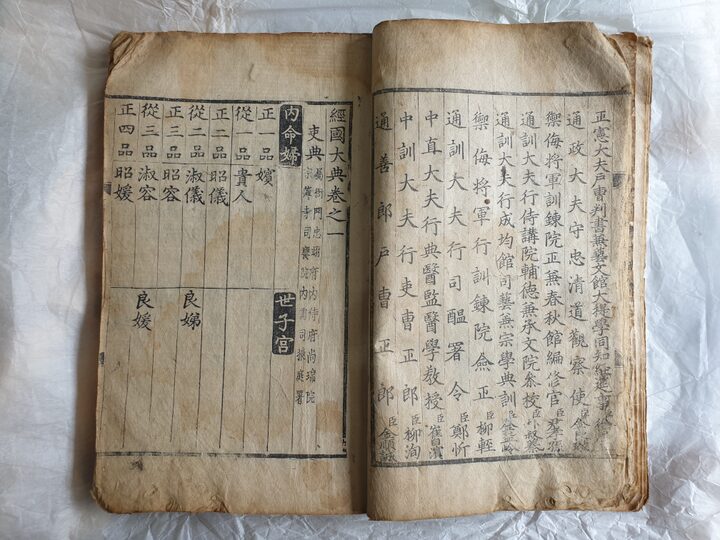 正憲大夫戶曹判書兼藝文館大提學同知經筵事臣
通政大夫守忠清道觀察使臣金
禦侮將軍訓鍊院正兼春秋館編修官臣
通訓大夫行侍講院輔德兼承文院參校臣
通訓大夫行成均館司藝兼宗學典訓臣
禦侮將軍行訓鍊院僉正臣柳輊
通訓大夫行司醞署令臣鄭忻
中直大夫行典醫監醫學教授臣崔
中訓大夫行吏曹正郎臣柳洵
通善郎戶曹正郎臣金順
經國大典卷之一
吏典 屬衙門忠翊府內侍府尚瑞院
宗簿寺司饔院內需司掖庭署
內命婦 世子宮
正一品嬪
從一品貴人
正二品昭儀
從二品淑儀 良娣
正三品昭容
從三品淑容 良媛
正四品昭媛